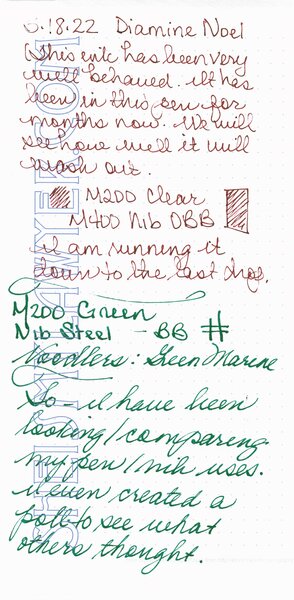 5.18.22 Diamine Noel
This ink has been very
well behaved. It has
been in this pen for
months now. We will
see how well it will
wash out.
M200 Clear
M400 Nib OBB
I am running it
down to the last drop.
M200 Green
Nib Steel - BB #
Noodlers: Green Marine
So - I have been
looking/comparing
my pen/nib uses.
I even created a
poll to see what
others thought.